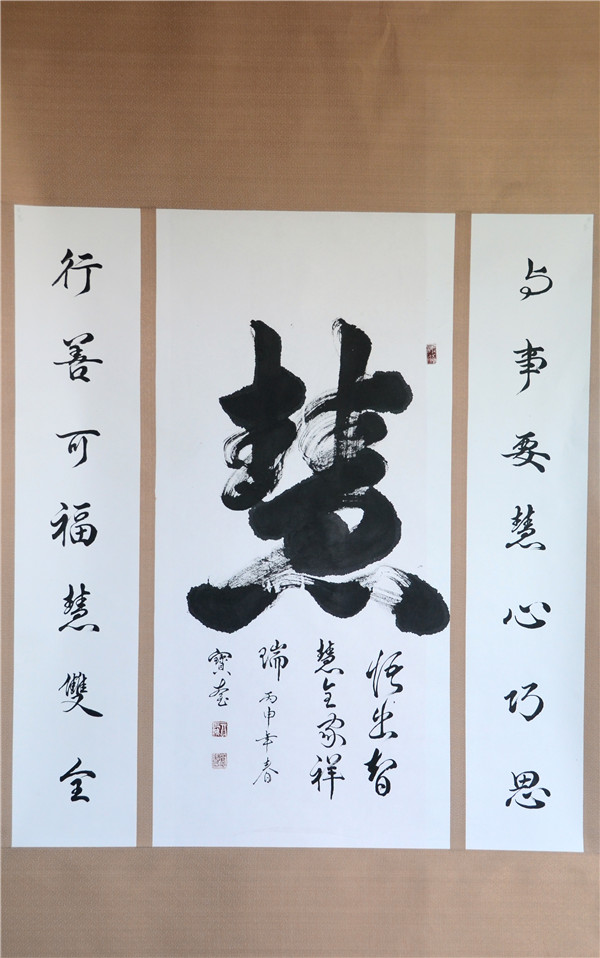 与事要慧心巧思
慧
悟出智
慧全家祥
瑞
丙申年春
寶奎
行善可福慧雙全